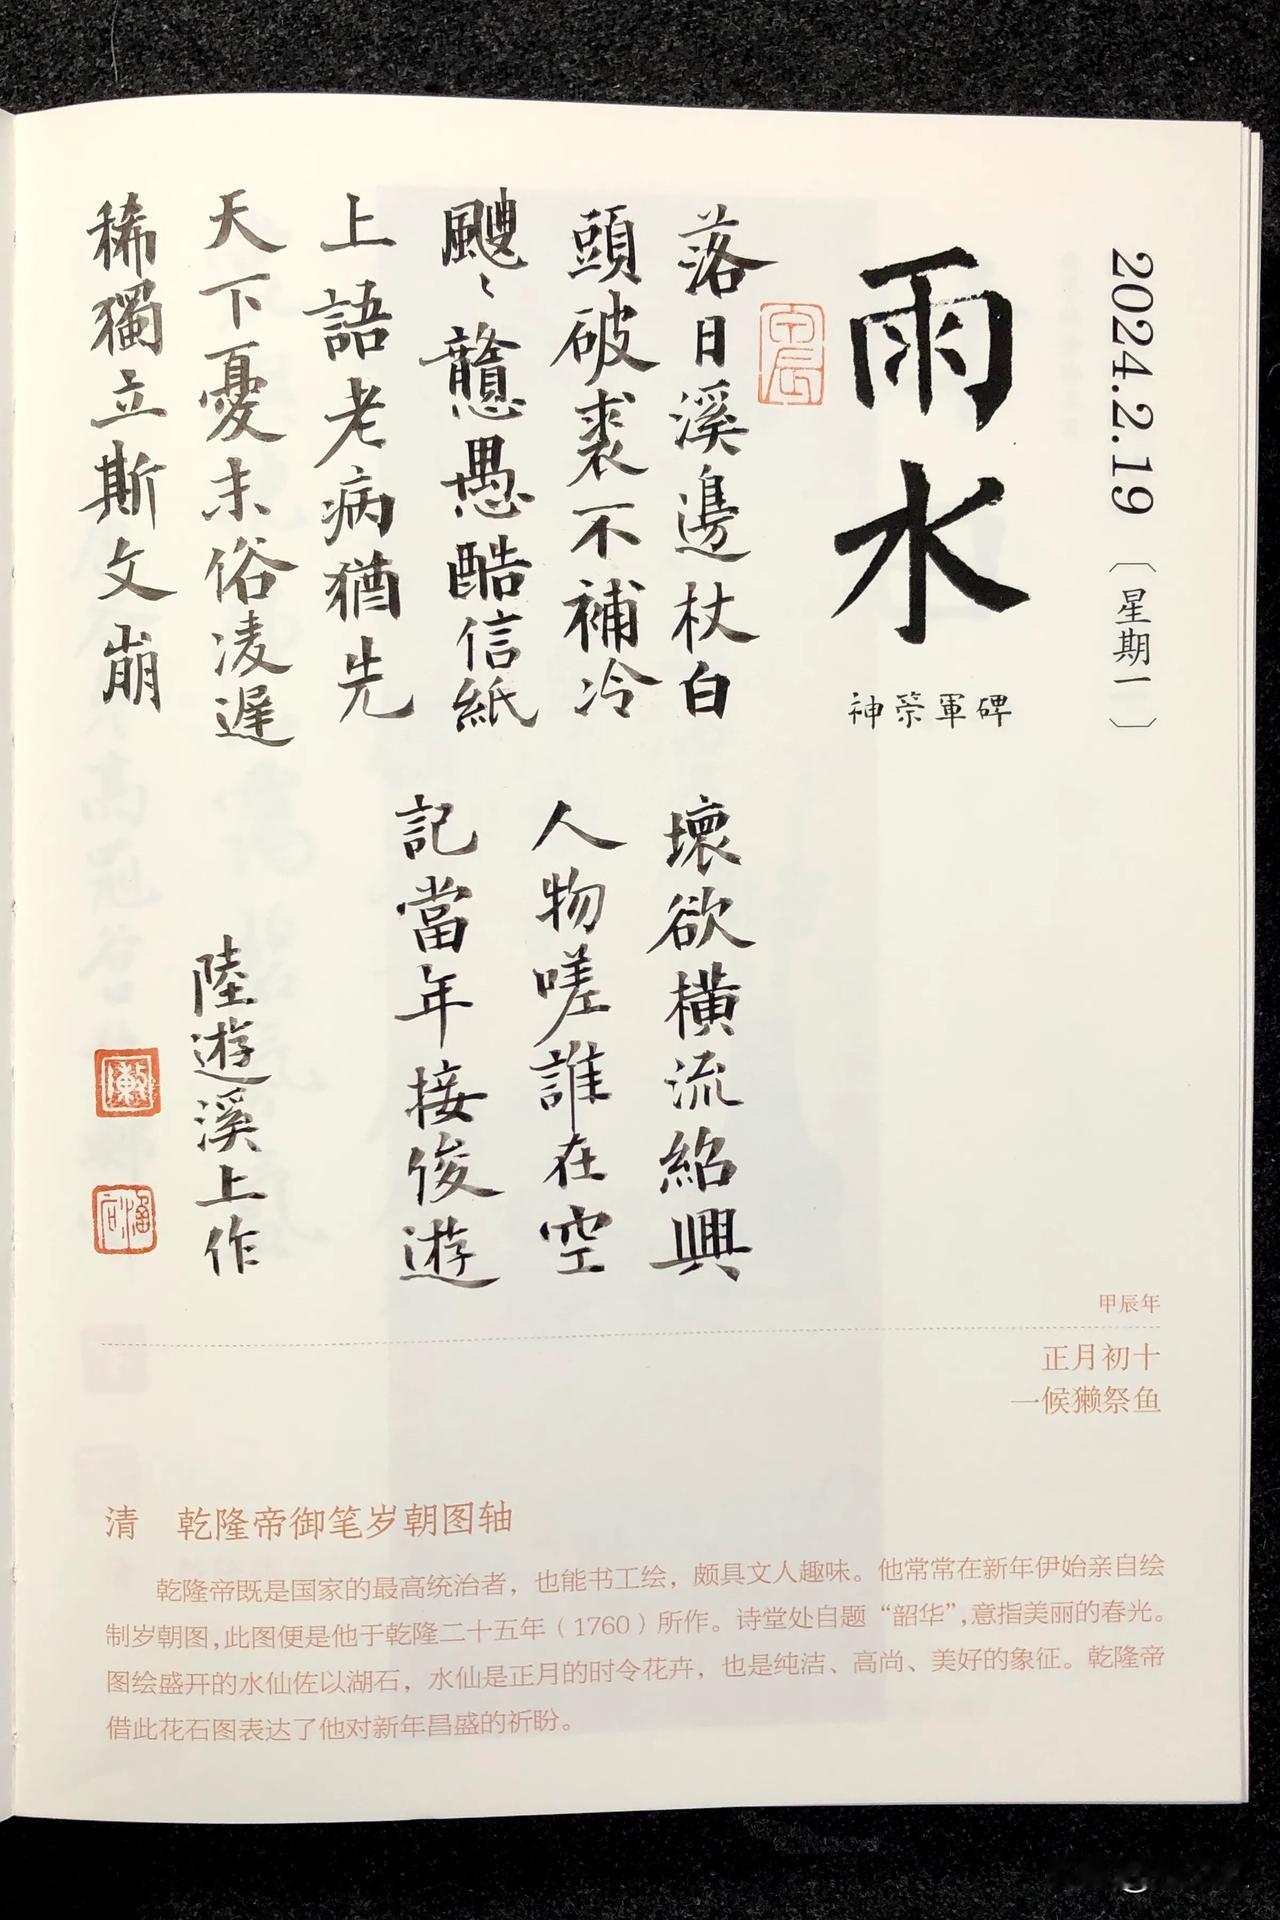 2024.2.19〔星期一〕
雨水
神策軍碑
甲辰
落日溪邊杖白
頭破裘不補冷
颼〻戇愚酷信紙
上語老病猶先
天下憂末俗凌遲
稀獨立斯文崩
壞欲橫流紹興
人物嗟誰在空
記當年接俊遊
陸遊溪上作
甲辰年
正月初十
一候獭祭鱼
清 乾隆帝御笔岁朝图轴
乾隆帝既是国家的最高统治者，也能书工绘，颇具文人趣味。他常常在新年伊始亲自绘
制岁朝图，此图便是他于乾隆二十五年（1760）所作。诗堂处自题“韶华”，意指美丽的春光。
图绘盛开的水仙佐以湖石，水仙是正月的时令花卉，也是纯洁、高尚、美好的象征。乾隆帝
借此花石图表达了他对新年昌盛的祈盼。